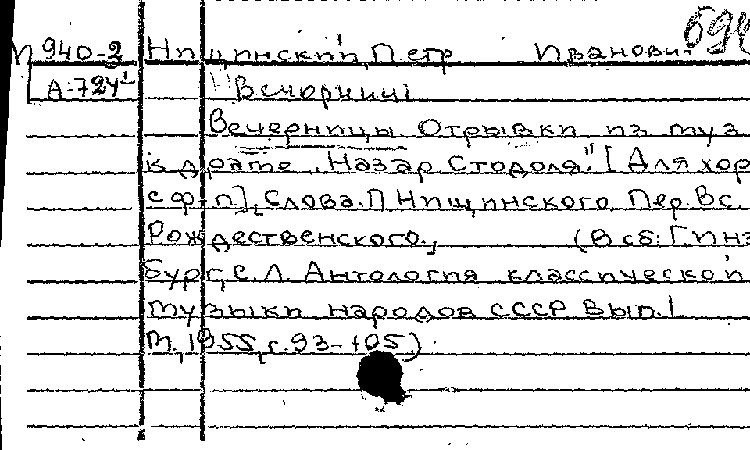 П 940-2 Нищинский, Петр Иванович 694
А-724¹ Вечорниці
Вечерницы. Отрывки из муз.
к драме „Назар Стодоля". [Для хор
с ф-п], Слова П. Нищинского. Пер. Вс.
Рождественского., (В сб: Гинз
бург, С. Л. Антология классической
музыки народов СССР. Вып. I
М., 1955, с. 93-105)